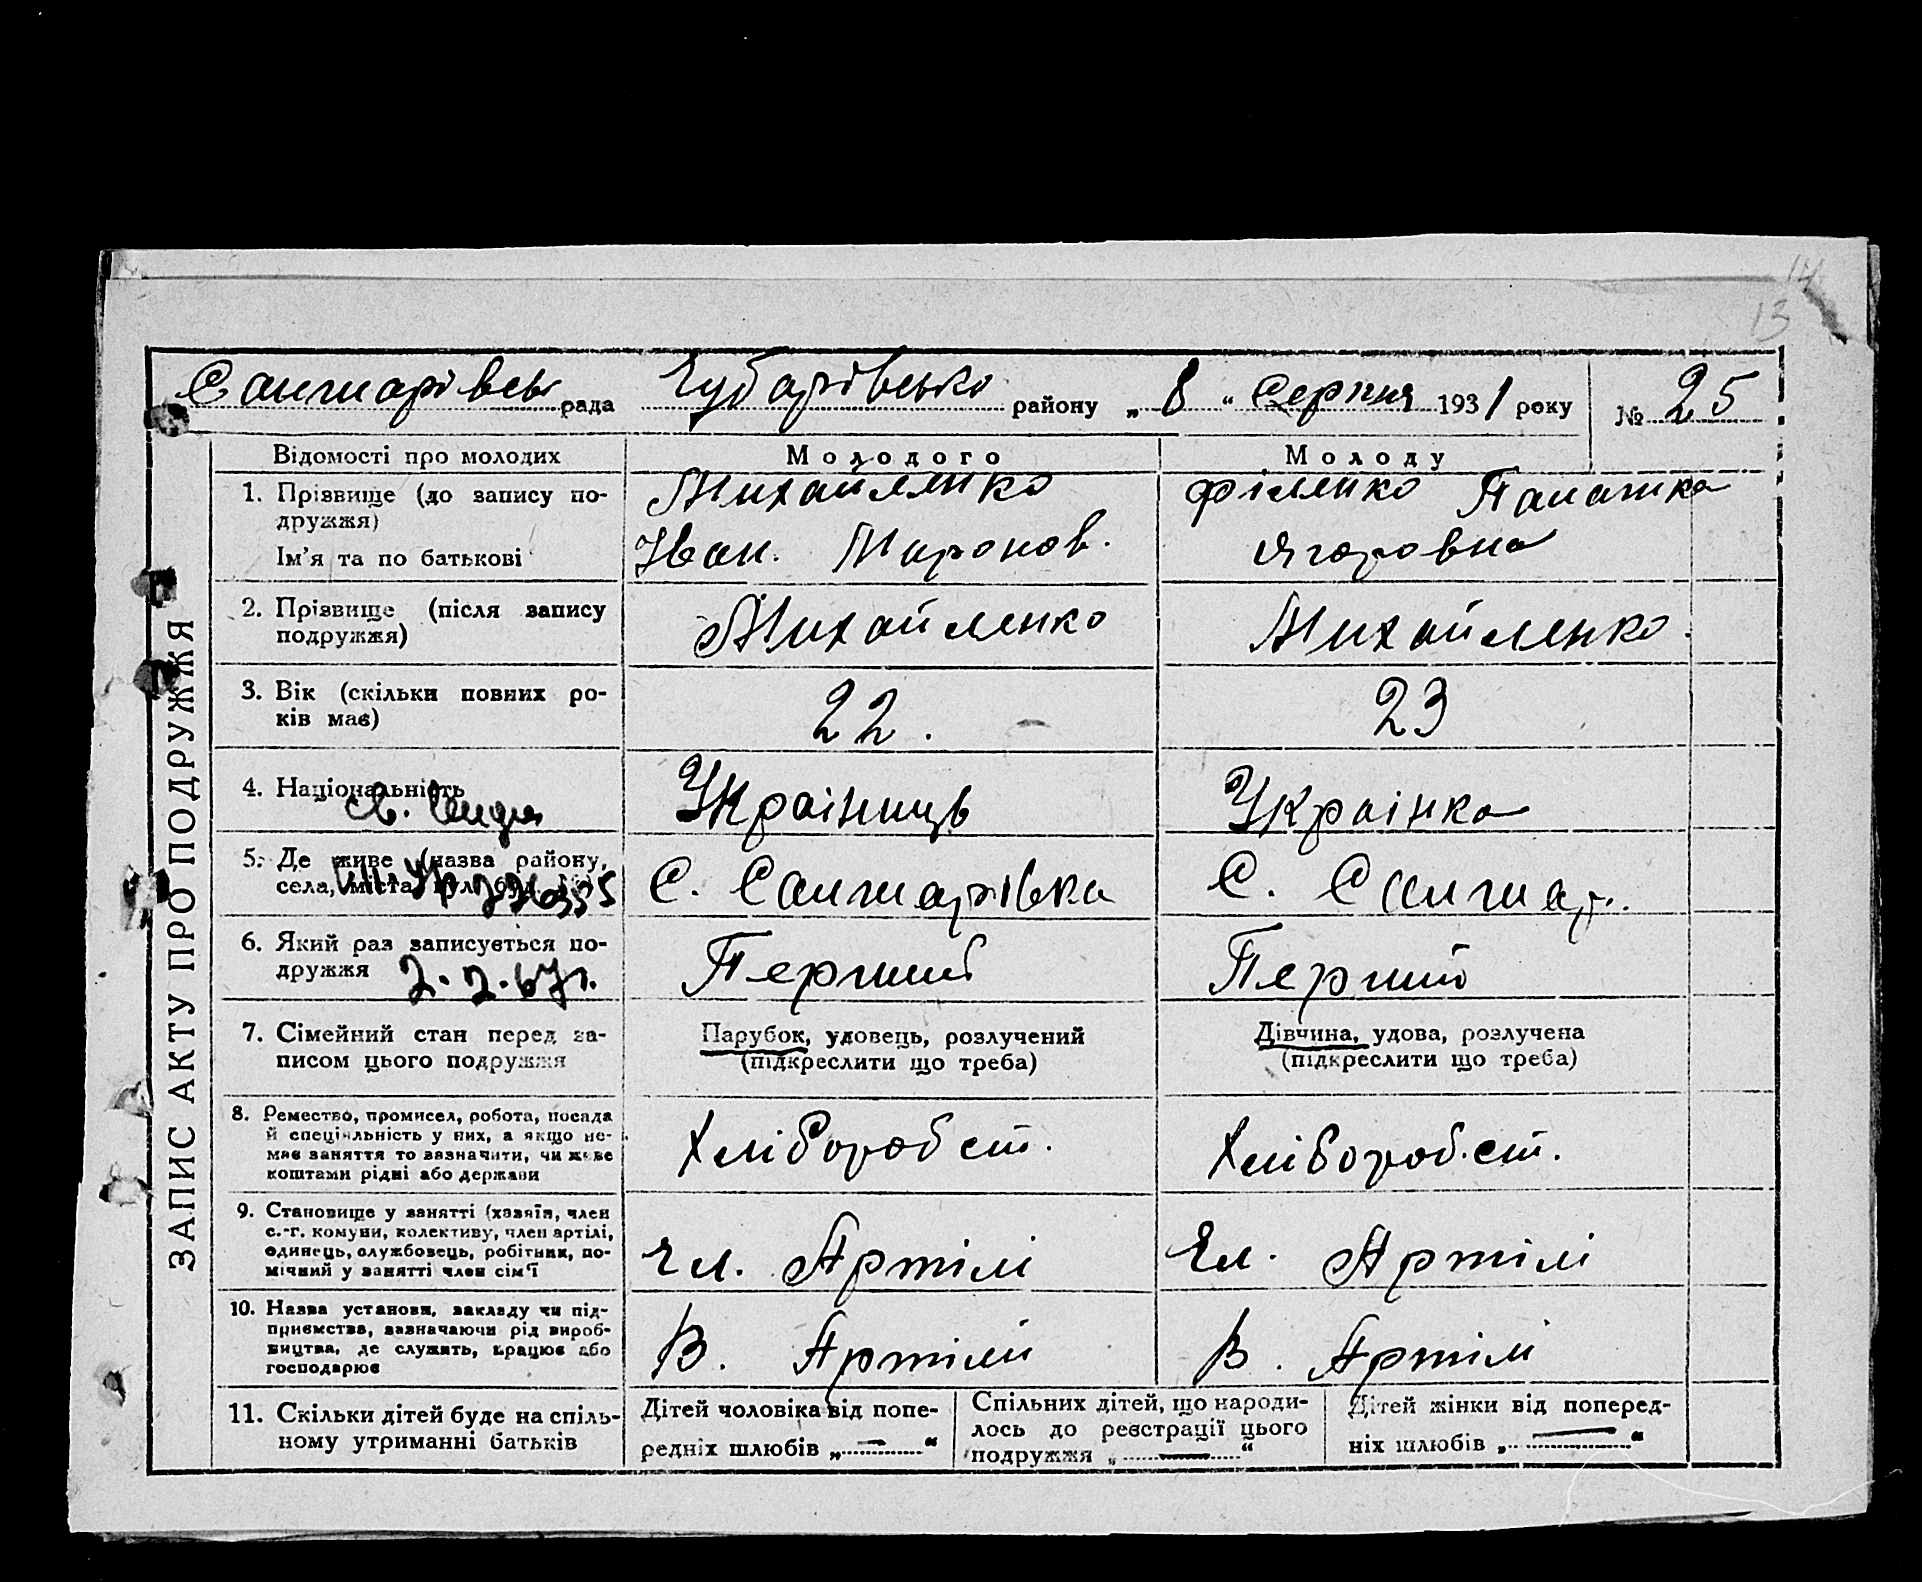 14
13
рада Чубарівсько району „ 8 “ Серпня 1931 року № 25
ЗАПИС АКТУ ПРО ПОДРУЖЖЯ
Відомості про молодих Молодого Молоду
1. Прізвище (до запису по-
дружжя)
Михайленко Філенко Палашка
Ім'я та по батькові Иван. Миронов. Ягоровна
2. Прізвище (після запису
подружжя)
Михайленко Михайленко
3. Вік (скільки повних ро-
ків має)
22. 23
4. Національність Українць Українка
5. Де живе (назва району,
села, міста, вул.
С. Сангиарівка С. Сангиар.
6. Який раз записується по-
дружжя 2.2.67г.
Перший Перший
7. Сімейний стан перед за-
писом цього подружжя
Парубок, удовець, розлучений
(підкреслити що треба)
Дівчина, удова, розлучена
(підкреслити що треба)
8. Ремество, промисел, робота, посада
й спеціяльність у них, а якщо не-
має заняття то зазначити, чи живе
коштами рідні або держави
Хлібороб ст. Хлібороб.ст.
9. Становище у занятті (хазяїн, член
с.-г. комуни, колективу, член артілі,
одинець, службовець, робітник, по-
мічний у занятті член сім'ї
Чл. Артілі Чл. Артілі
10. Назва установи, закладу чи під-
приємства, зазначаючи рід вироб-
ництва, де служить, працює або
господарює
В. Артілі В. Артілі
11. Скільки дітей буде на спіль-
ному утриманні батьків
Дітей чоловіка від попе-
редніх шлюбів „ — “
Спільних дітей, що народи-
лось до реєстрації цього
подружжя „ — “
Дітей жінки від поперед-
ніх шлюбів „ — “